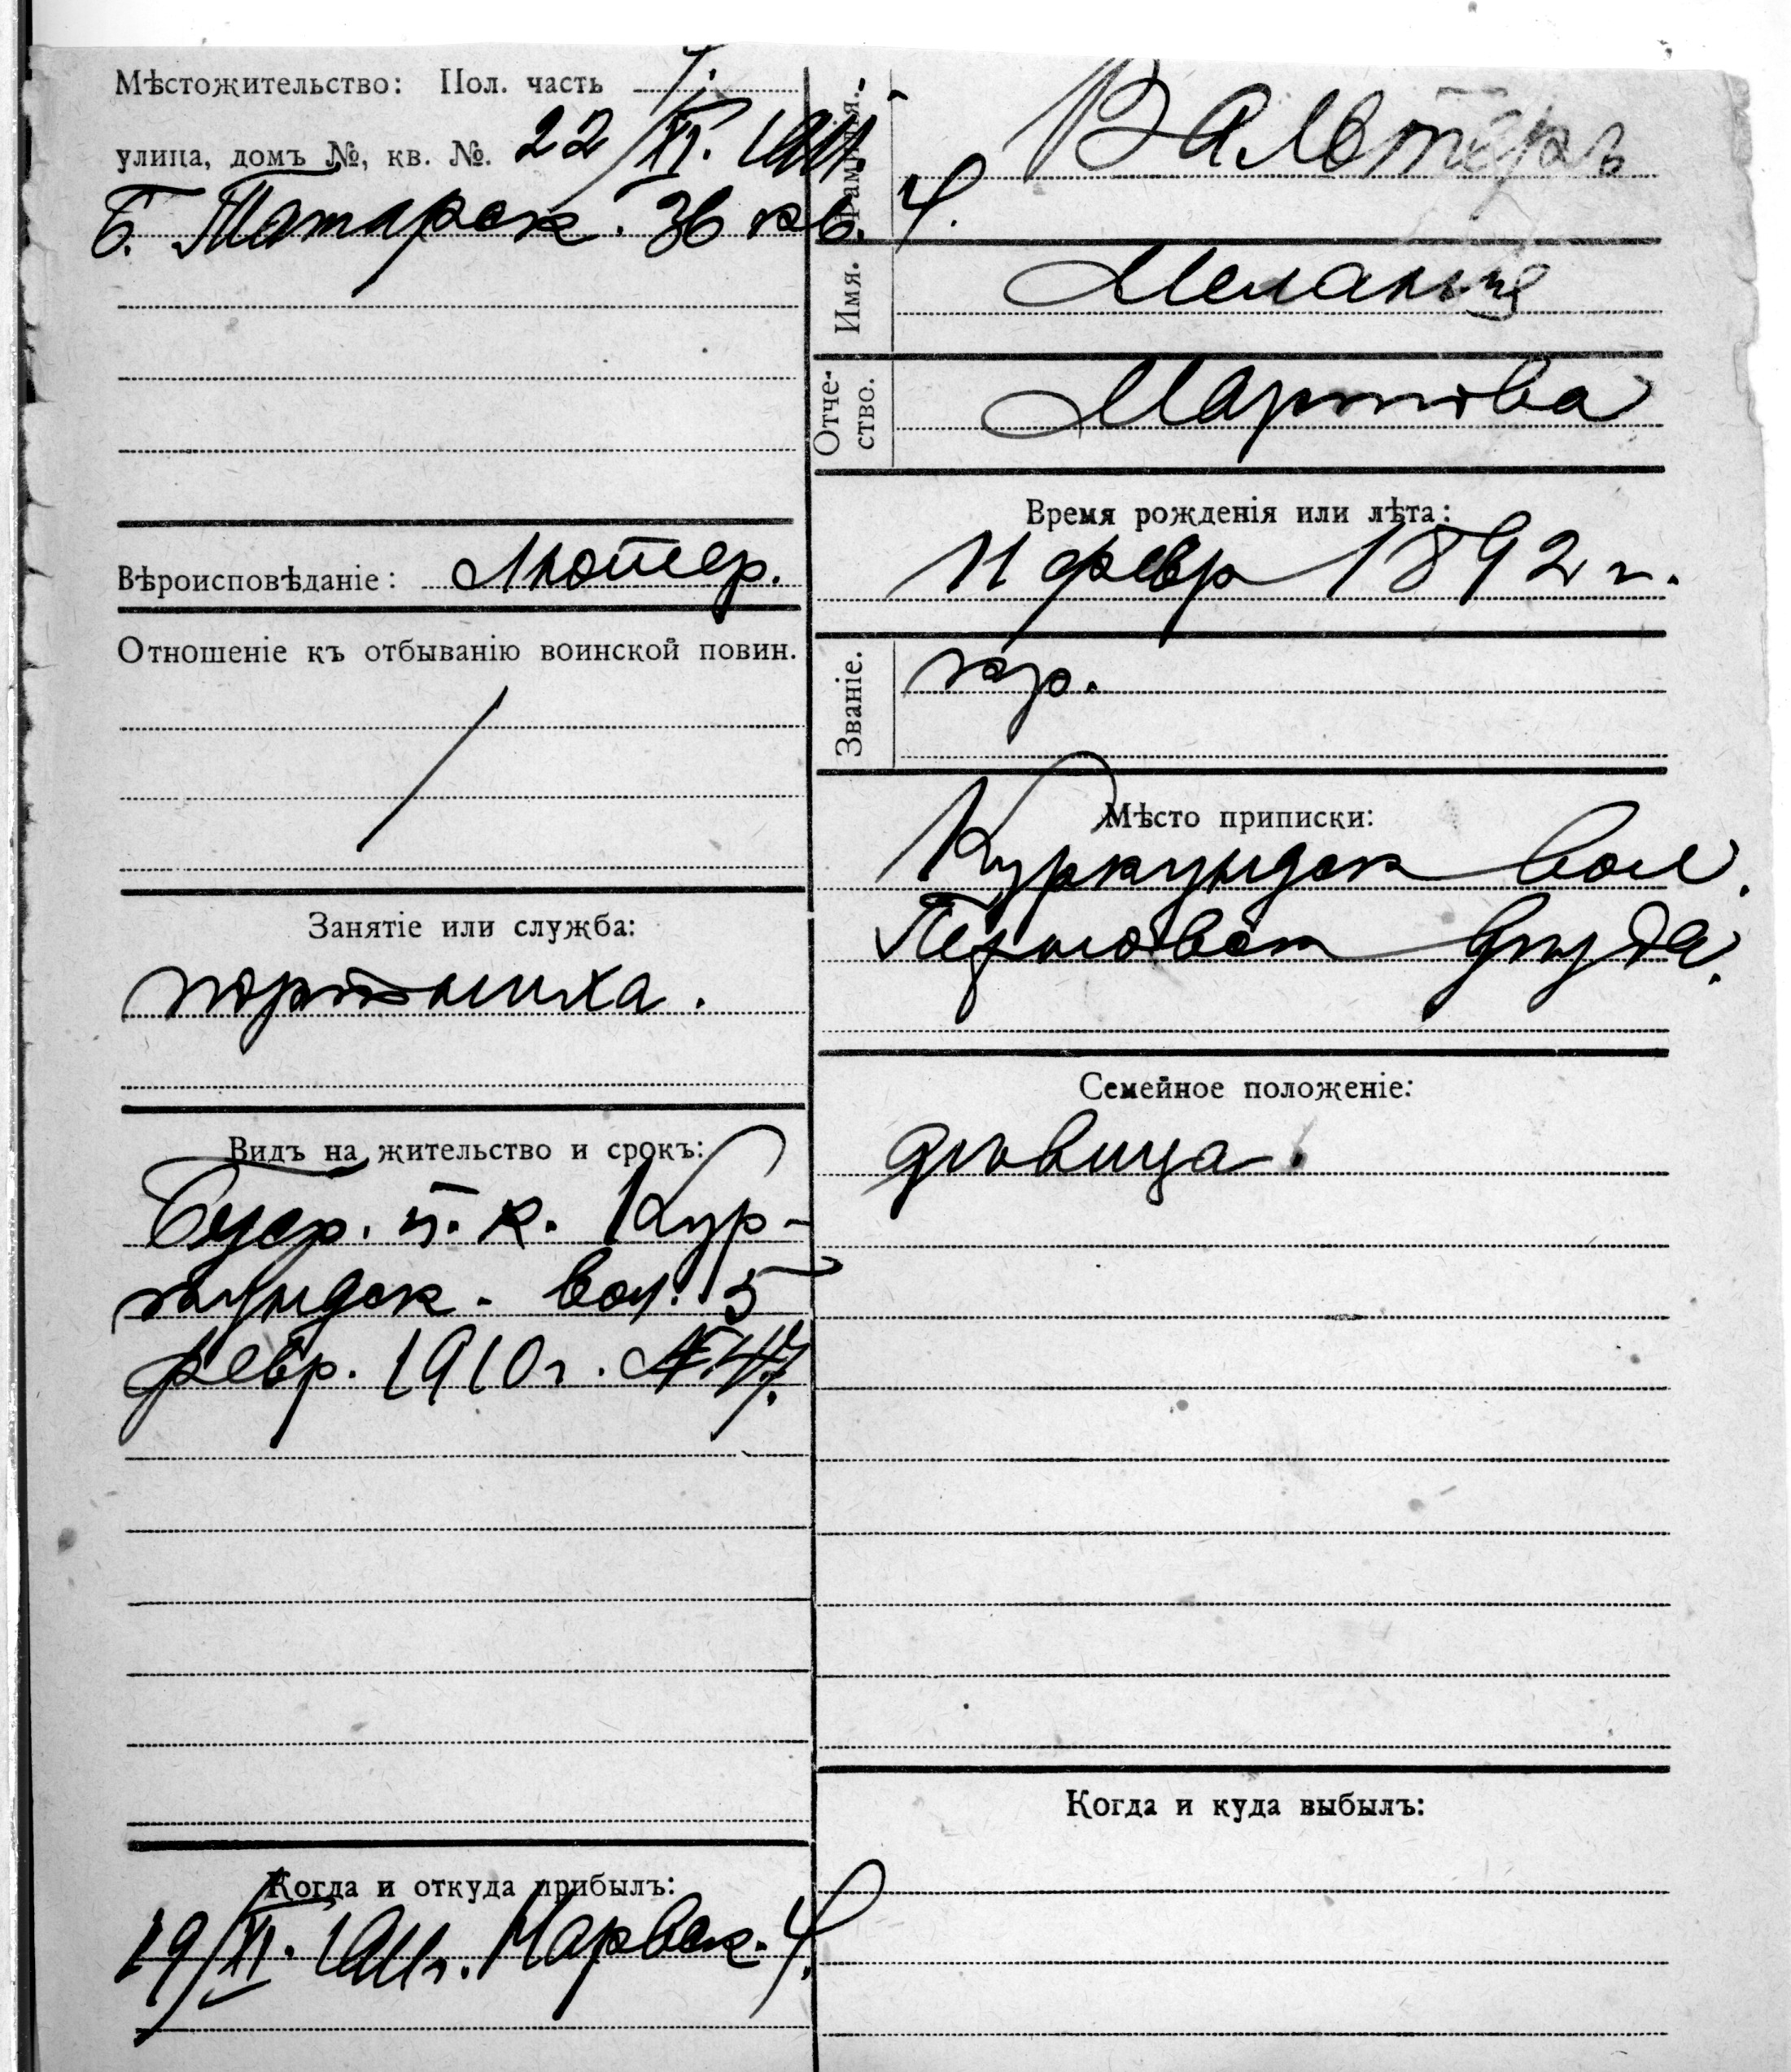 Мѣстожительство: Пол. часть 1.
улица, домъ №, кв. №. 22/XI. 1911.
Б. Татарск. 36 кв. 4.
Вѣроисповѣданіе: Лютер.
Отношеніе къ отбыванію воинской повин.
/
Занятіе или служба:
портниха.
Видъ на жительство и срокъ:
Безср. п. к. Кур-
кундск. вол. 5
февр. 1910 г. № 47.
Когда и откуда прибылъ:
19/XI. 1911 г. Нарвск. 4.
Фамилія.
Вальтеръ
Имя.
Меланія
Отче-
ство.
Мартова
Время рожденія или лѣта:
11 февр 1892 г.
Званіе.
кр.
Мѣсто приписки:
Куркундск вол.
Перновск уѣзда.
Семейное положеніе:
дѣвица.
Когда и куда выбылъ: